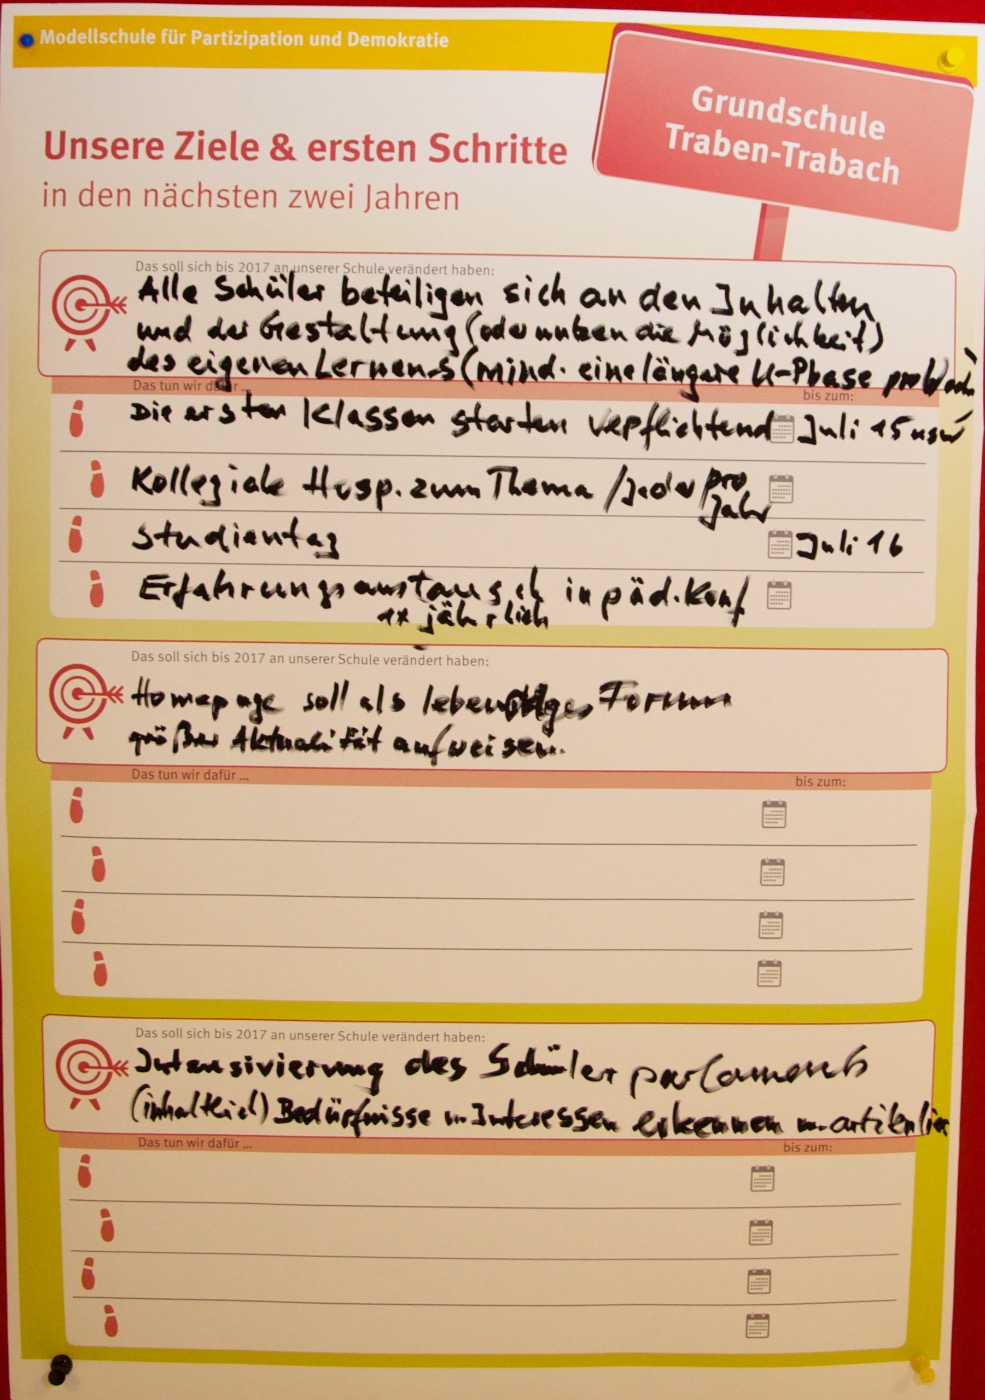 Modellschule für Partizipation und Demokratie
Grundschule
Traben-Trabach
Unsere Ziele & ersten Schritte
in den nächsten zwei Jahren
Das soll sich bis 2017 an unserer Schule verändert haben:
Alle Schüler beteiligen sich an den Inhalten
und der Gestaltung (oder nutzen die Möglichkeit)
des eigenen Lernens (mind. eine längere U-Phase pro Woche
Das tun wir dafür ...
bis zum:
Die ersten Klassen starten verpflichtend Juli 15 usw
Kollegiale Hosp. zum Thema / jeder pro
Jahr
Studientag Juli 16
Erfahrungsaustausch in päd. Konf
1x jährlich
Das soll sich bis 2017 an unserer Schule verändert haben:
Homepage soll als lebendiges Forum
größer Aktualität aufweisen.
Das tun wir dafür ...
bis zum:
Das soll sich bis 2017 an unserer Schule verändert haben:
Intensivierung des Schülerparlaments
(inhaltlich) Bedürfnisse u. Interessen erkennen u.
Das tun wir dafür ...
bis zum: